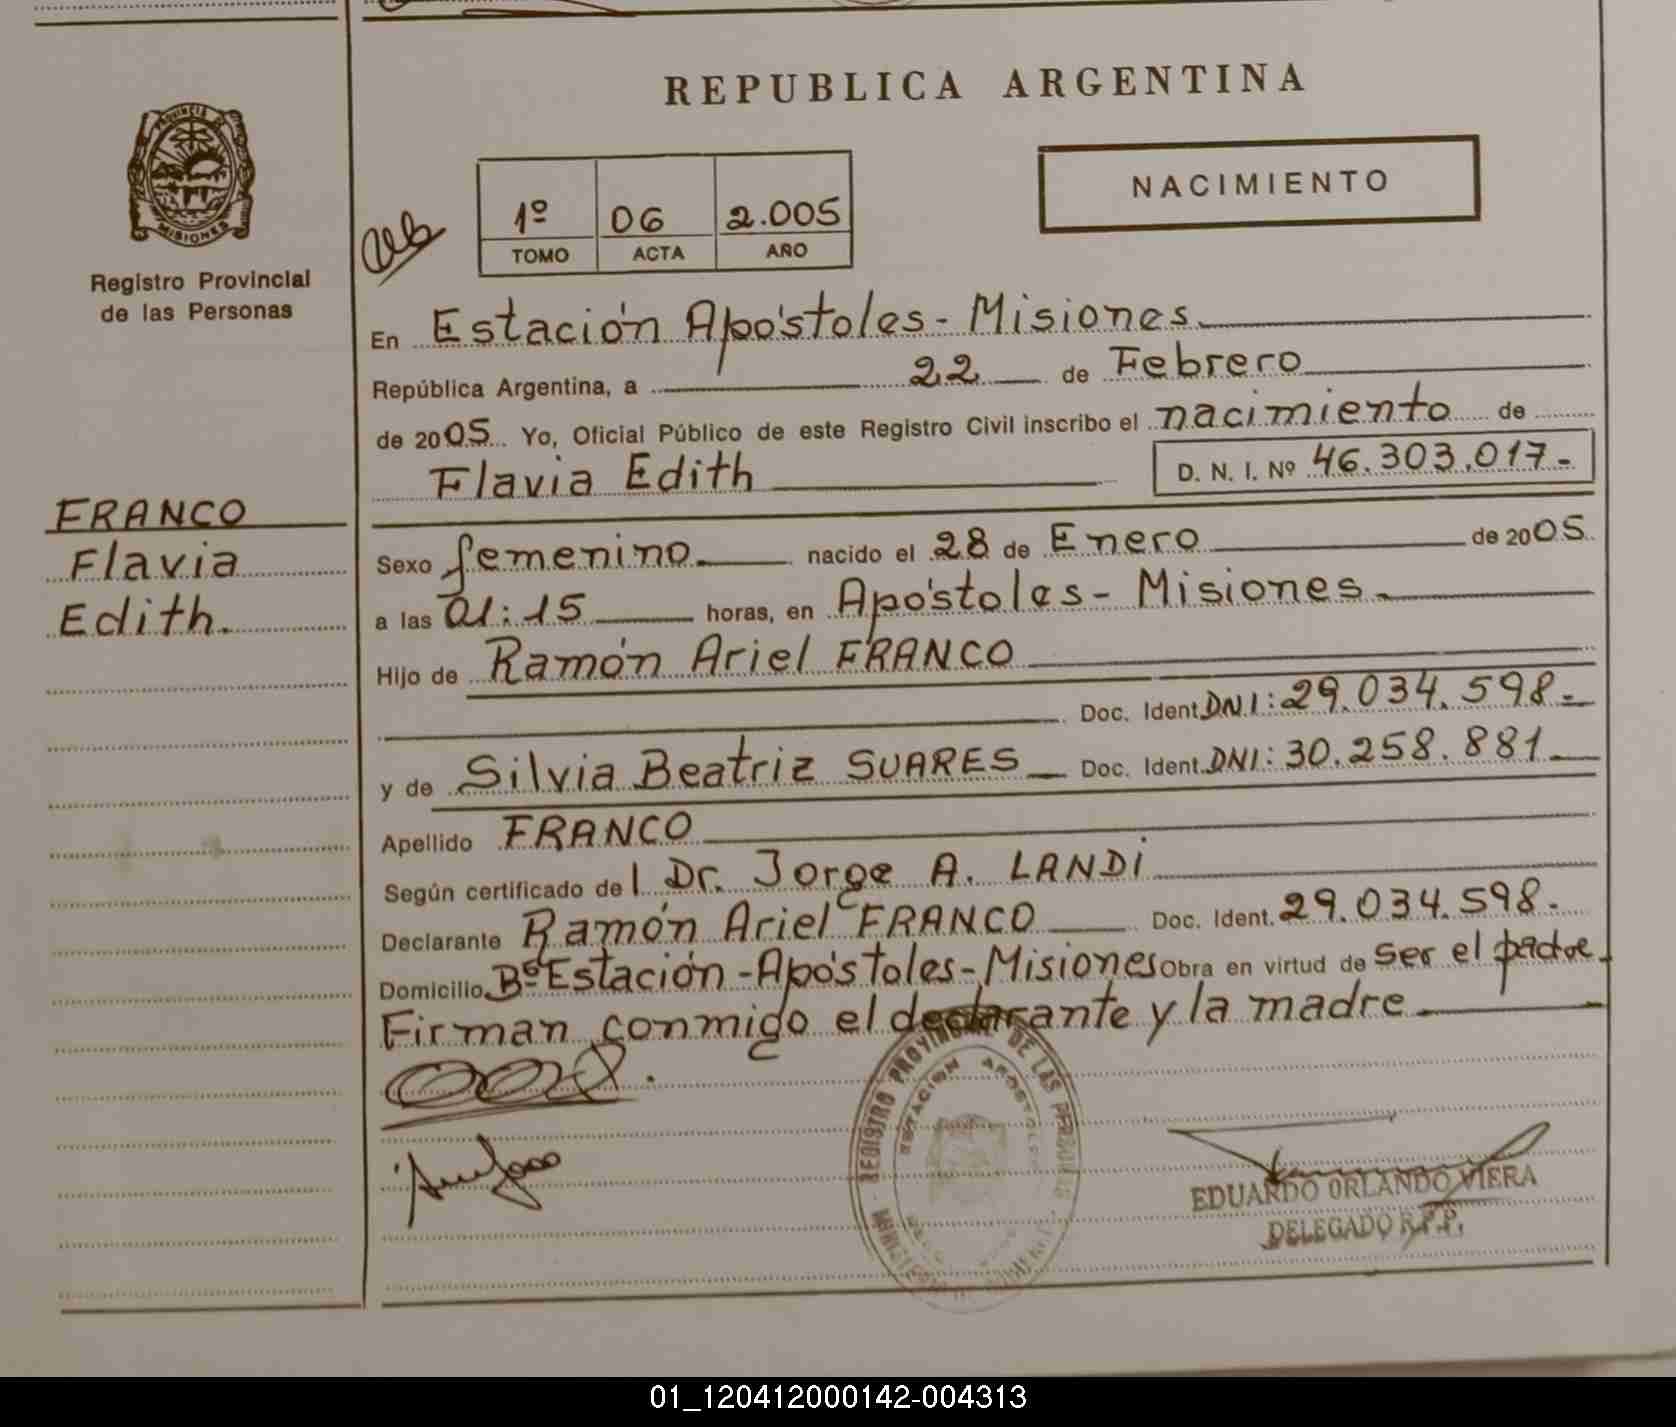 REPUBLICA ARGENTINA
PROVINCIA DE
MISIONES
Registro Provincial
de las Personas
NACIMIENTO
1º 06 2.005
TOMO ACTA AÑO
En Estación Apóstoles - Misiones
República Argentina, a 22 de Febrero
de 2005 Yo, Oficial Público de este Registro Civil inscribo el nacimiento de
Flavia Edith D. N. I. Nº 46.303.017-
FRANCO
Flavia
Edith.
Sexo femenino nacido el 28 de Enero de 2005
a las 01:15 horas, en Apóstoles - Misiones
Hijo de Ramón Ariel FRANCO
Doc. Ident. DNI: 29.034.598-
y de Silvia Beatriz SUARES Doc. Ident. DNI: 30.258.881
Apellido FRANCO
Según certificado del Dr. Jorge A. LANDI
Declarante Ramón Ariel FRANCO Doc. Ident. 29.034.598-
Domicilio Bº Estación - Apóstoles - Misiones Obra en virtud de ser el padre
Firman conmigo el declarante y la madre
REGISTRO PROVINCIAL DE LAS PERSONAS
ESTACION APOSTOLES
EDUARDO ORLANDO VIERA
DELEGADO R.P.P.
01_120412000142-004313